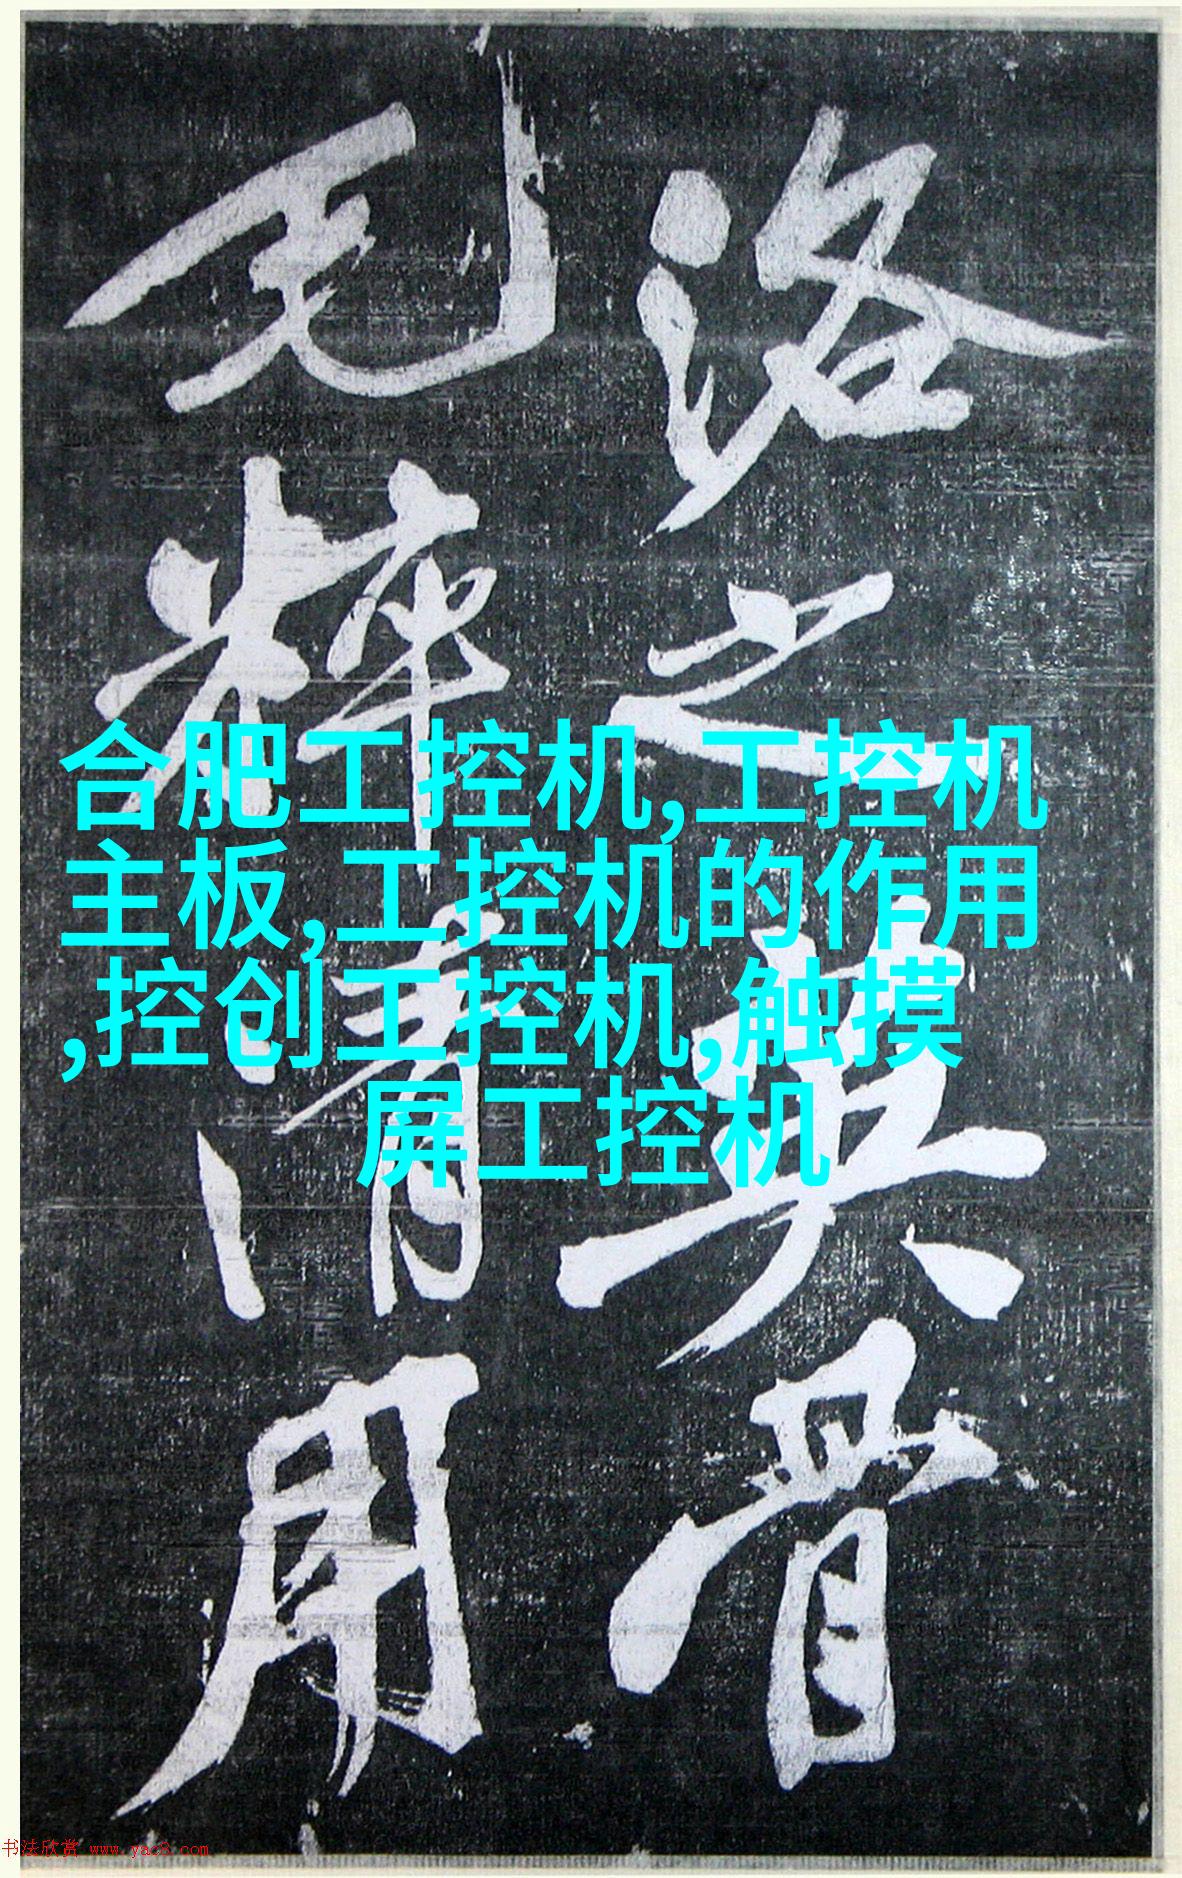 洛之英骨
毛粹清用
合肥工控机,工控机
主板,工控机的作用
,控创工控机,触摸
屏工控机
书法欣赏 www.yac8.com